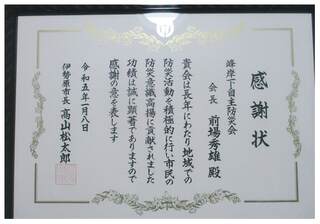 感謝状
峰岸下自主防災会
会長 前場秀雄 殿
貴会は長年にわたり地域での
防災活動を積極的に行い市民の
防災意識高揚に貢献されました
功績は誠に顕著でありますので
感謝の意を表します
令和五年一月八日
伊勢原市長 高山松太郎